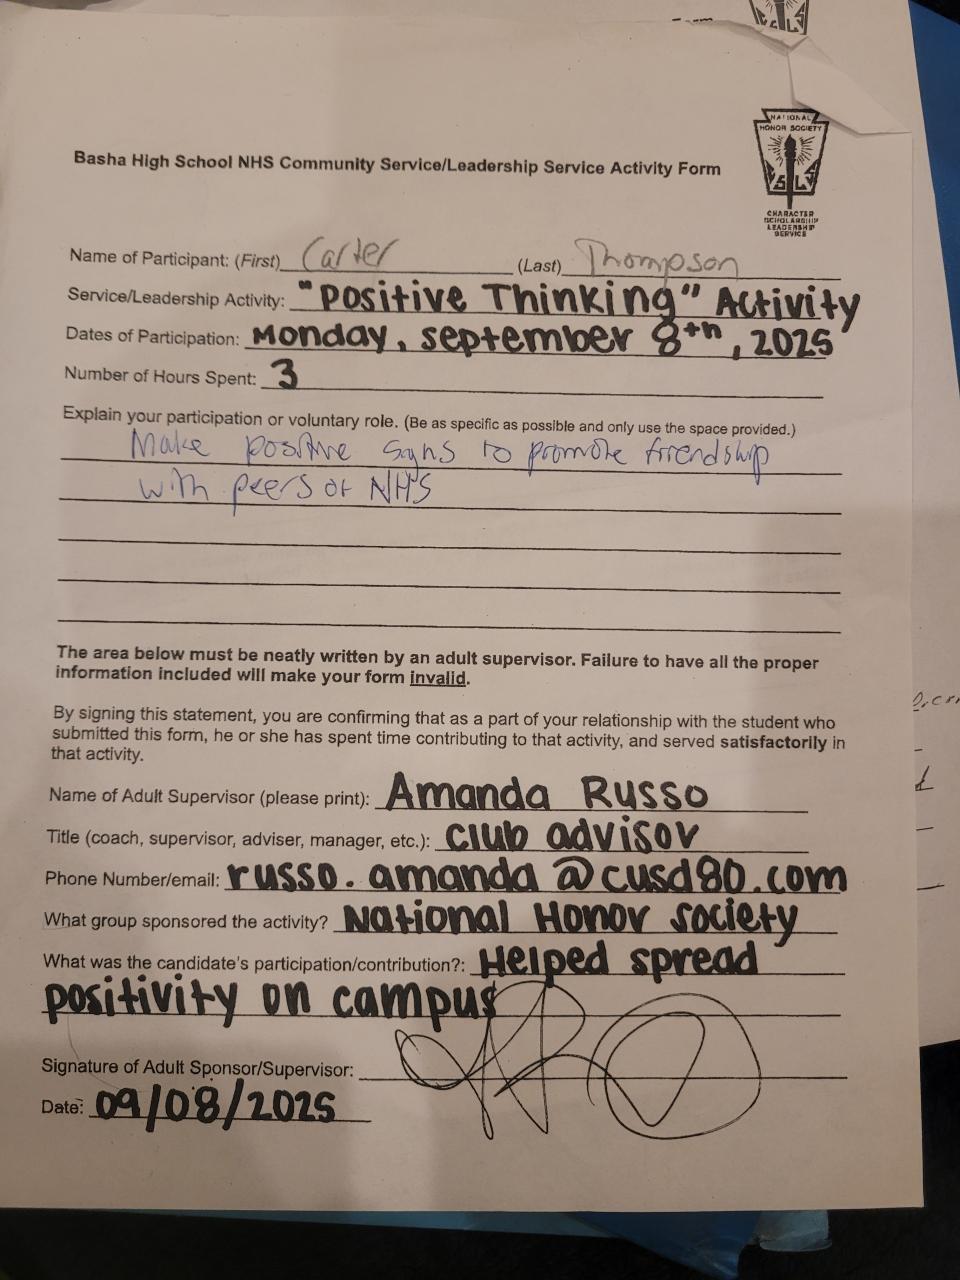 NATIONAL
HONOR SOCIETY
CHARACTER
SCHOLARSHIP
LEADERSHIP
SERVICE
Basha High School NHS Community Service/Leadership Service Activity Form
Name of Participant: (First) Carter (Last) Thompson
Service/Leadership Activity: "Positive Thinking" Activity
Dates of Participation: Monday, September 8th, 2025
Number of Hours Spent: 3
Explain your participation or voluntary role. (Be as specific as possible and only use the space provided.)
Make positive signs to promote friendship
with peers of NHS
The area below must be neatly written by an adult supervisor. Failure to have all the proper
information included will make your form invalid.
By signing this statement, you are confirming that as a part of your relationship with the student who
submitted this form, he or she has spent time contributing to that activity, and served satisfactorily in
that activity.
Name of Adult Supervisor (please print): Amanda Russo
Title (coach, supervisor, adviser, manager, etc.): Club advisor
Phone Number/email: russo.amanda@cusd80.com
What group sponsored the activity? National Honor Society
What was the candidate's participation/contribution?: Helped spread
positivity on campus
Signature of Adult Sponsor/Supervisor:
Date: 09/08/2025